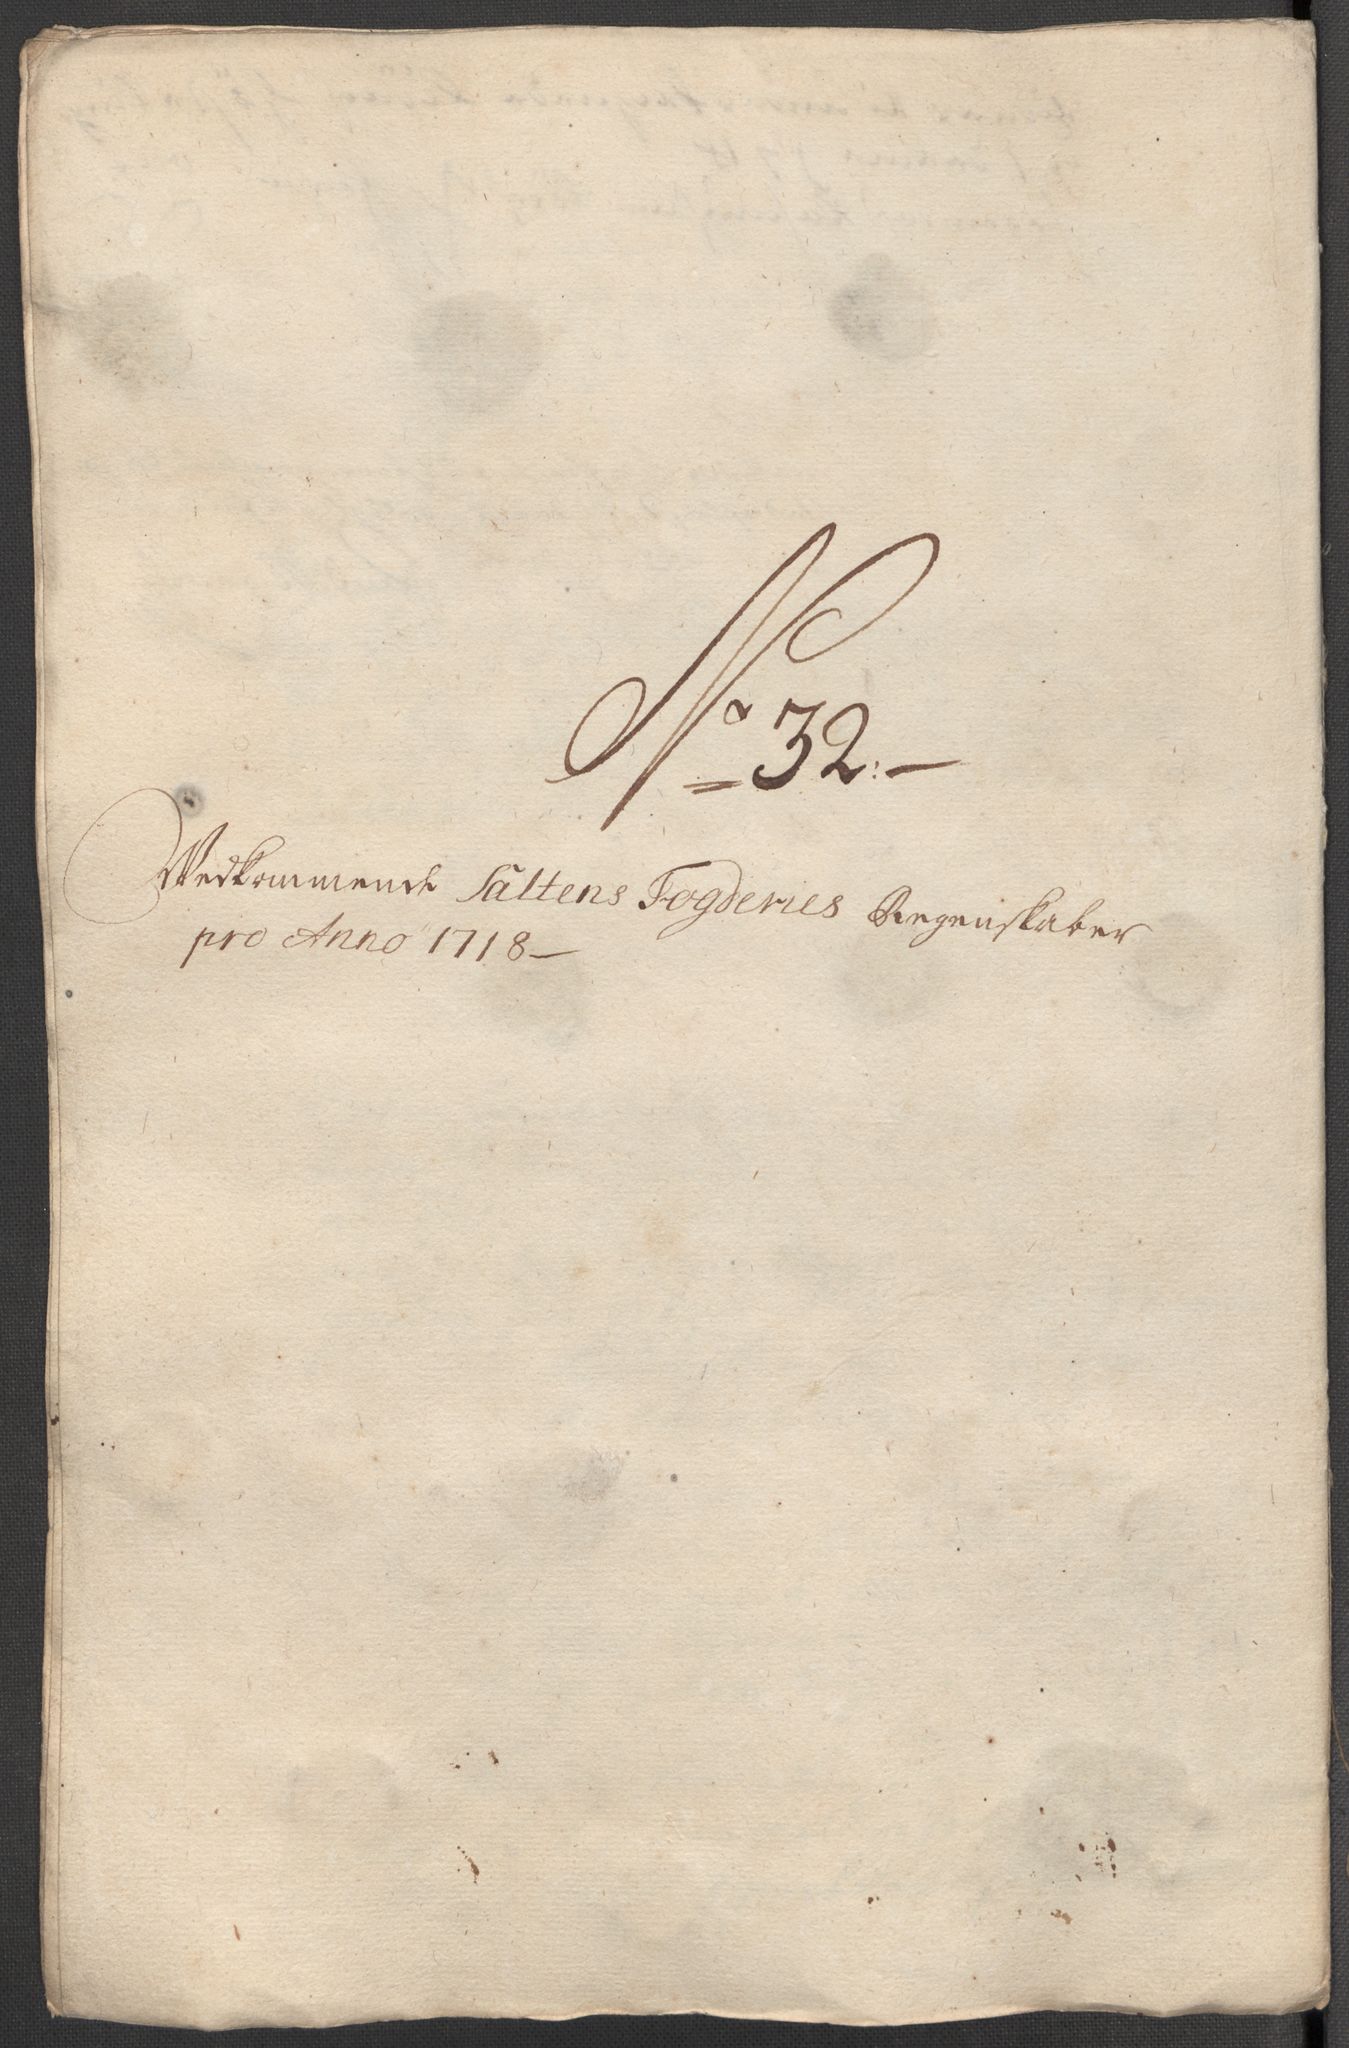 No 32:—
Vedkommende Saltens Fogderies Regenskaber
pro Anno 1718—